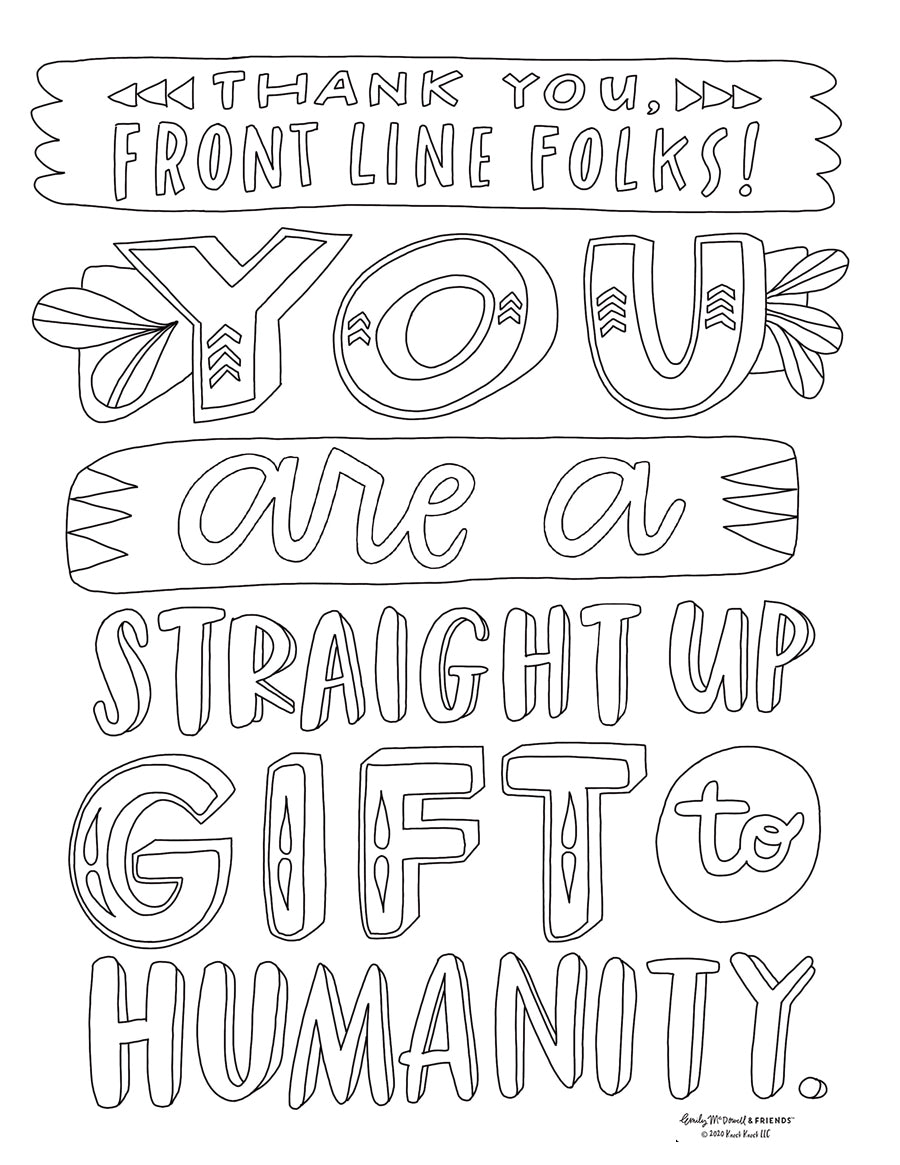 THANK YOU,
FRONT LINE FOLKS!
YOU
are a
STRAIGHT UP
GIFT to
HUMANITY.
Emily McDowell & FRIENDS™
© 2020 Knock Knock LLC